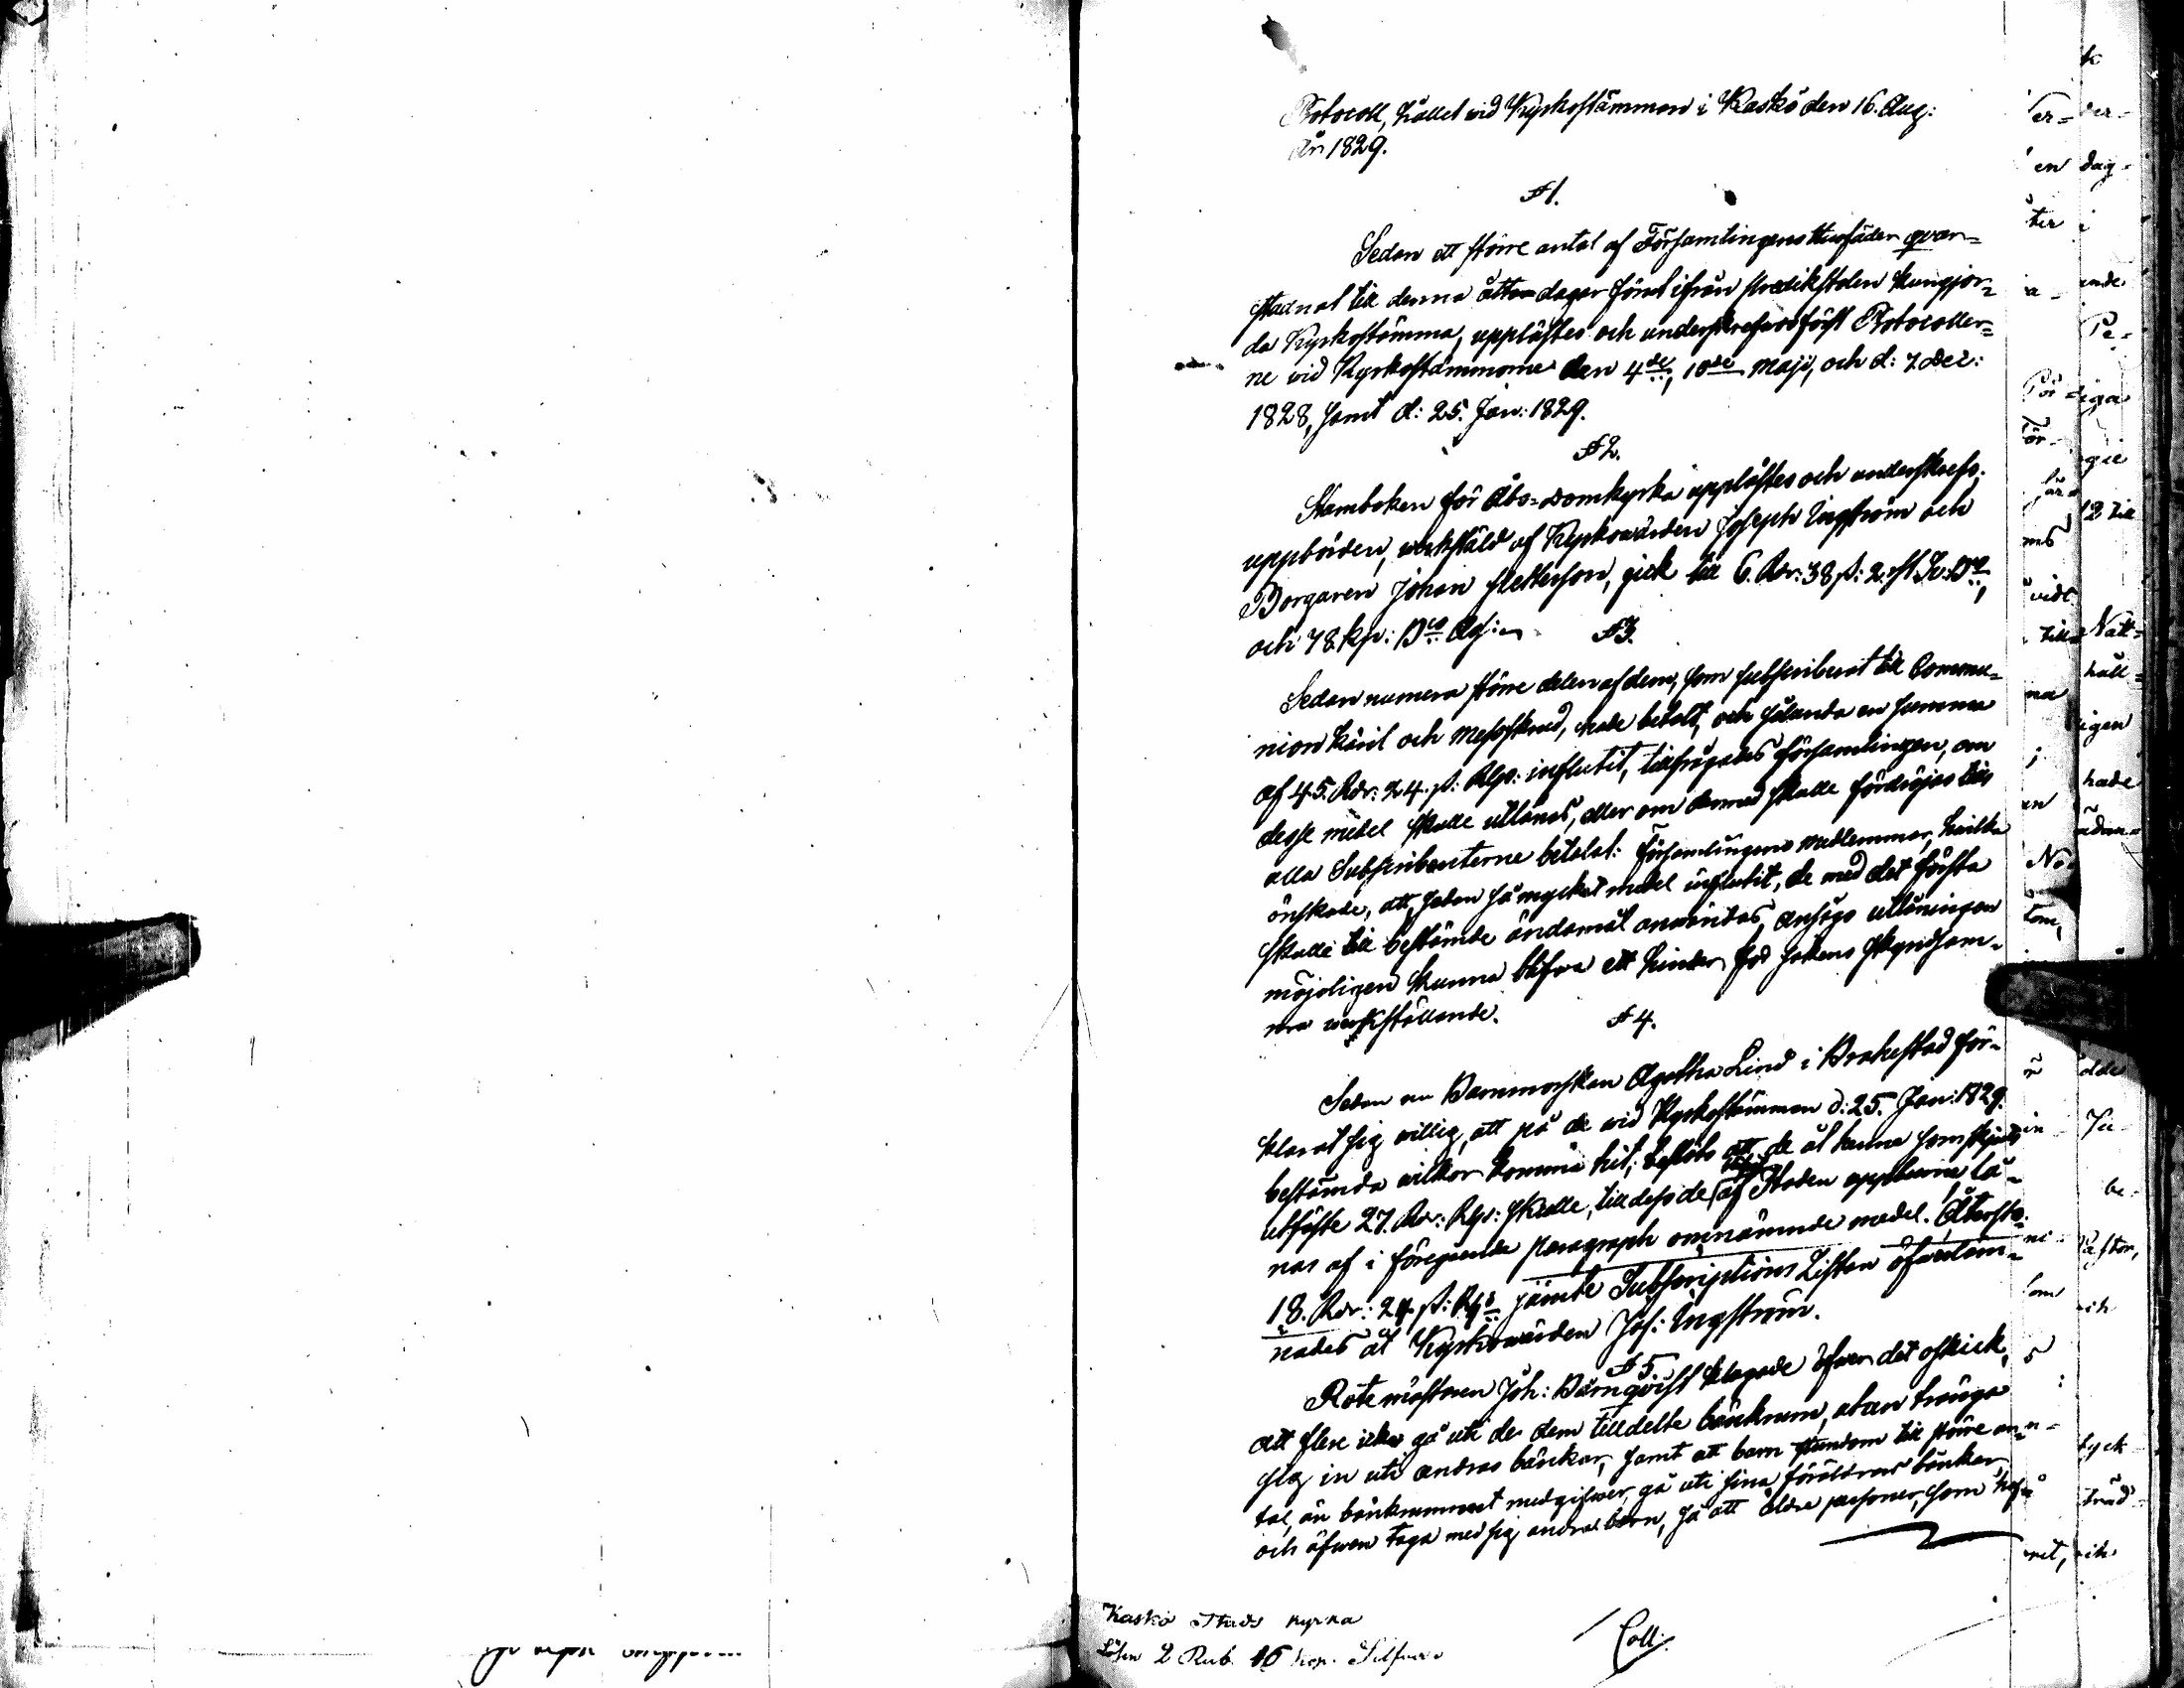 Protocoll, hållet vid Kyrkostämman i Kaskö den 16. Aug:
År 1829.
§ 1.
Sedan ett större antal af Församlingens Husfäder qvar=
stadnat till denna åtta dagar förut ifrån predikstolen kungjor=
da Kyrkostämma, upplästes och underskrefvos först Protocoller=
ne vid Kyrkostämmorne den 4de, 10de Maji, och d: 7. Dec:
1828, samt d: 25. Jan: 1829.
§ 2.
Stamboken för Åbo=Domkyrka upplästes och underskrefs;
uppbörden, werkstäld af Kyrkowärden Joseph Ingström och
Borgaren Johan Petterson, gick till 6. Rdr: 38 ß: 2. st Sv: Do,
och 78 kp: Do
§ 3.
Sedan numera större delen af dem, som subscriberat till Commu=
nion käril och Messskrud, hade betalt, och sålunda en summa
af 45. Rdr: 24. ß: Rgs: influtit, tillfrågades församlingen, om
desse medel skulle utlånas, eller om dermed skulle fördröjas till
alla Subscribenterne betalat: Församlingens medlemmar, hvilka
önskade, att, sedan så mycket medel influtit, de med det första
skulle till bestämde ändamål användas, ansågo utlåningen
möjeligen kunna blifva ett hinder för sakens skyndsam=
ma werkställande.
§ 4.
Sedan nu Barnmorskan Agatha Lind i Brahestad för=
klarat sig villig, att på de vid Kyrkostämman d: 25. Jan: 1829.
bestämda wilkor komma hit, beslöts att de åt henne som skjuts
utfäste 27. Rdr: Rgs: skulle, till dess de af Staden uppburne, lå=
nas af i föregående paragraph omnämnde medel. Återsto:
18. Rdr: 24 ß: Rgs jämte Subscriptions Listan öfverläm=
nades åt Kyrkowärden Jos: Ingström.
§ 5
Rotemästaren Joh: Bärnqvist klagade öfwer det oskick,
att flere icke gå uti de dem tilldelte bänkrum, utan tränga
sig in uti andras bänkar, samt att barn stundom till större an=
tal, än bänkrummet medgifwer, gå uti sina föräldrars bänkar,
och äfwen taga med sig andra barn, så att äldre personer, som haf=
Kaskö Stads kyrka
Lösen 2 Rub. 16 kop. Silfwer
Coll: